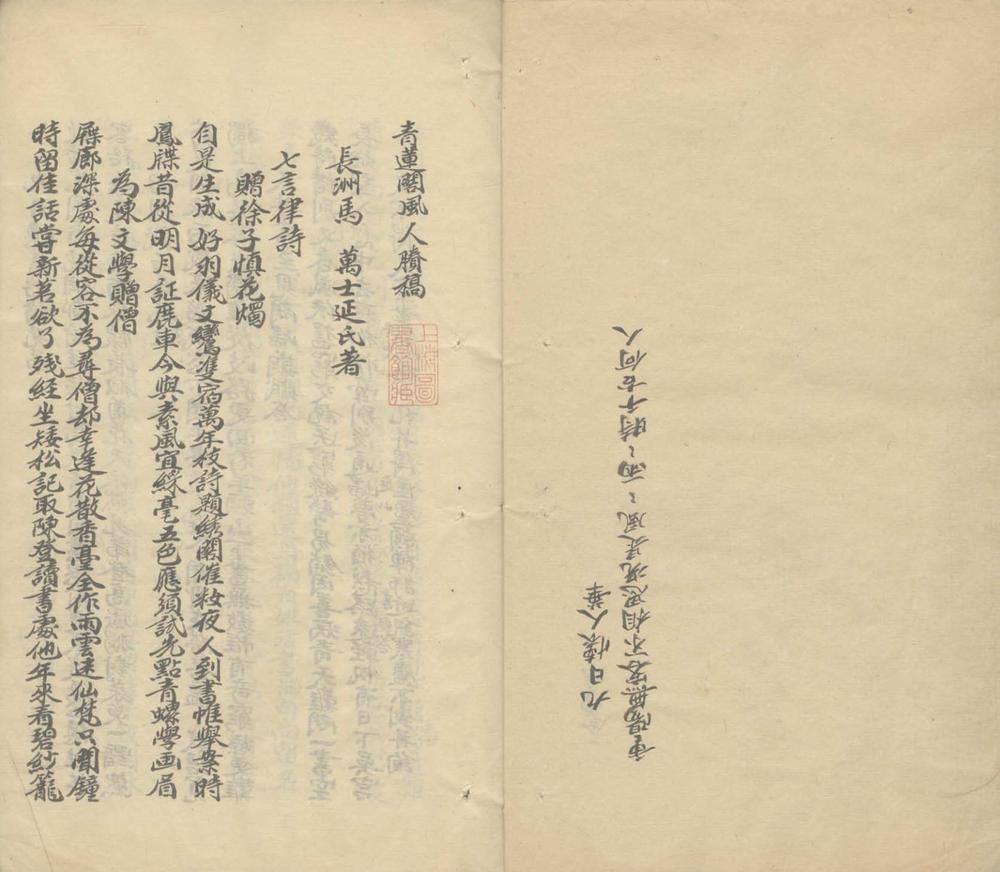 九日懷人
重陽無客不相思況是風〻雨〻時千古何人
青蓮閣風人賸稿
長洲馬 萬士延氏著
上海圖
書館藏
七言律詩
贈徐子慎花燭
自是生成好羽儀文鸞雙宿萬年枝詩題綉閣催粧夜人到書帷舉案時
鳳牒昔從明月証鹿車今與素風宜綵毫五色應須試先點青螺學画眉
為陳文學贈僧
屧廊深處每從容不為尋僧却幸逢花散香臺全作雨雲迷仙梵只聞鐘
時留佳話嘗新茗欲了殘経坐矮松記取陳登讀書處他年來看碧紗籠